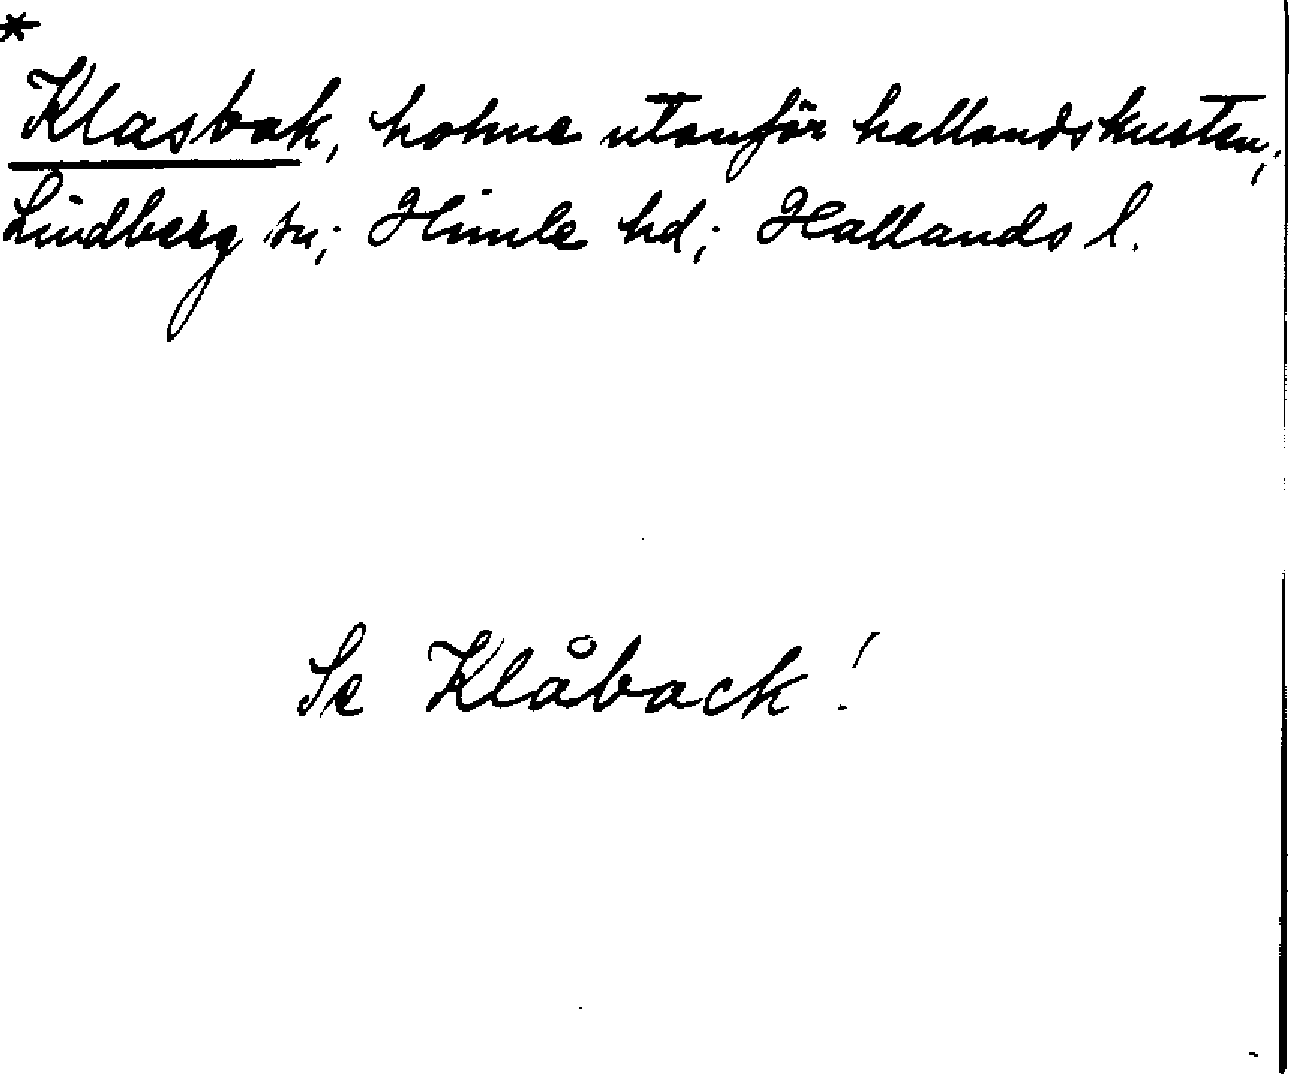 *
Klasbak, holme utanför hallandskusten;
Lindberg sn; Himle hd; Hallands l.
Se Klåback!